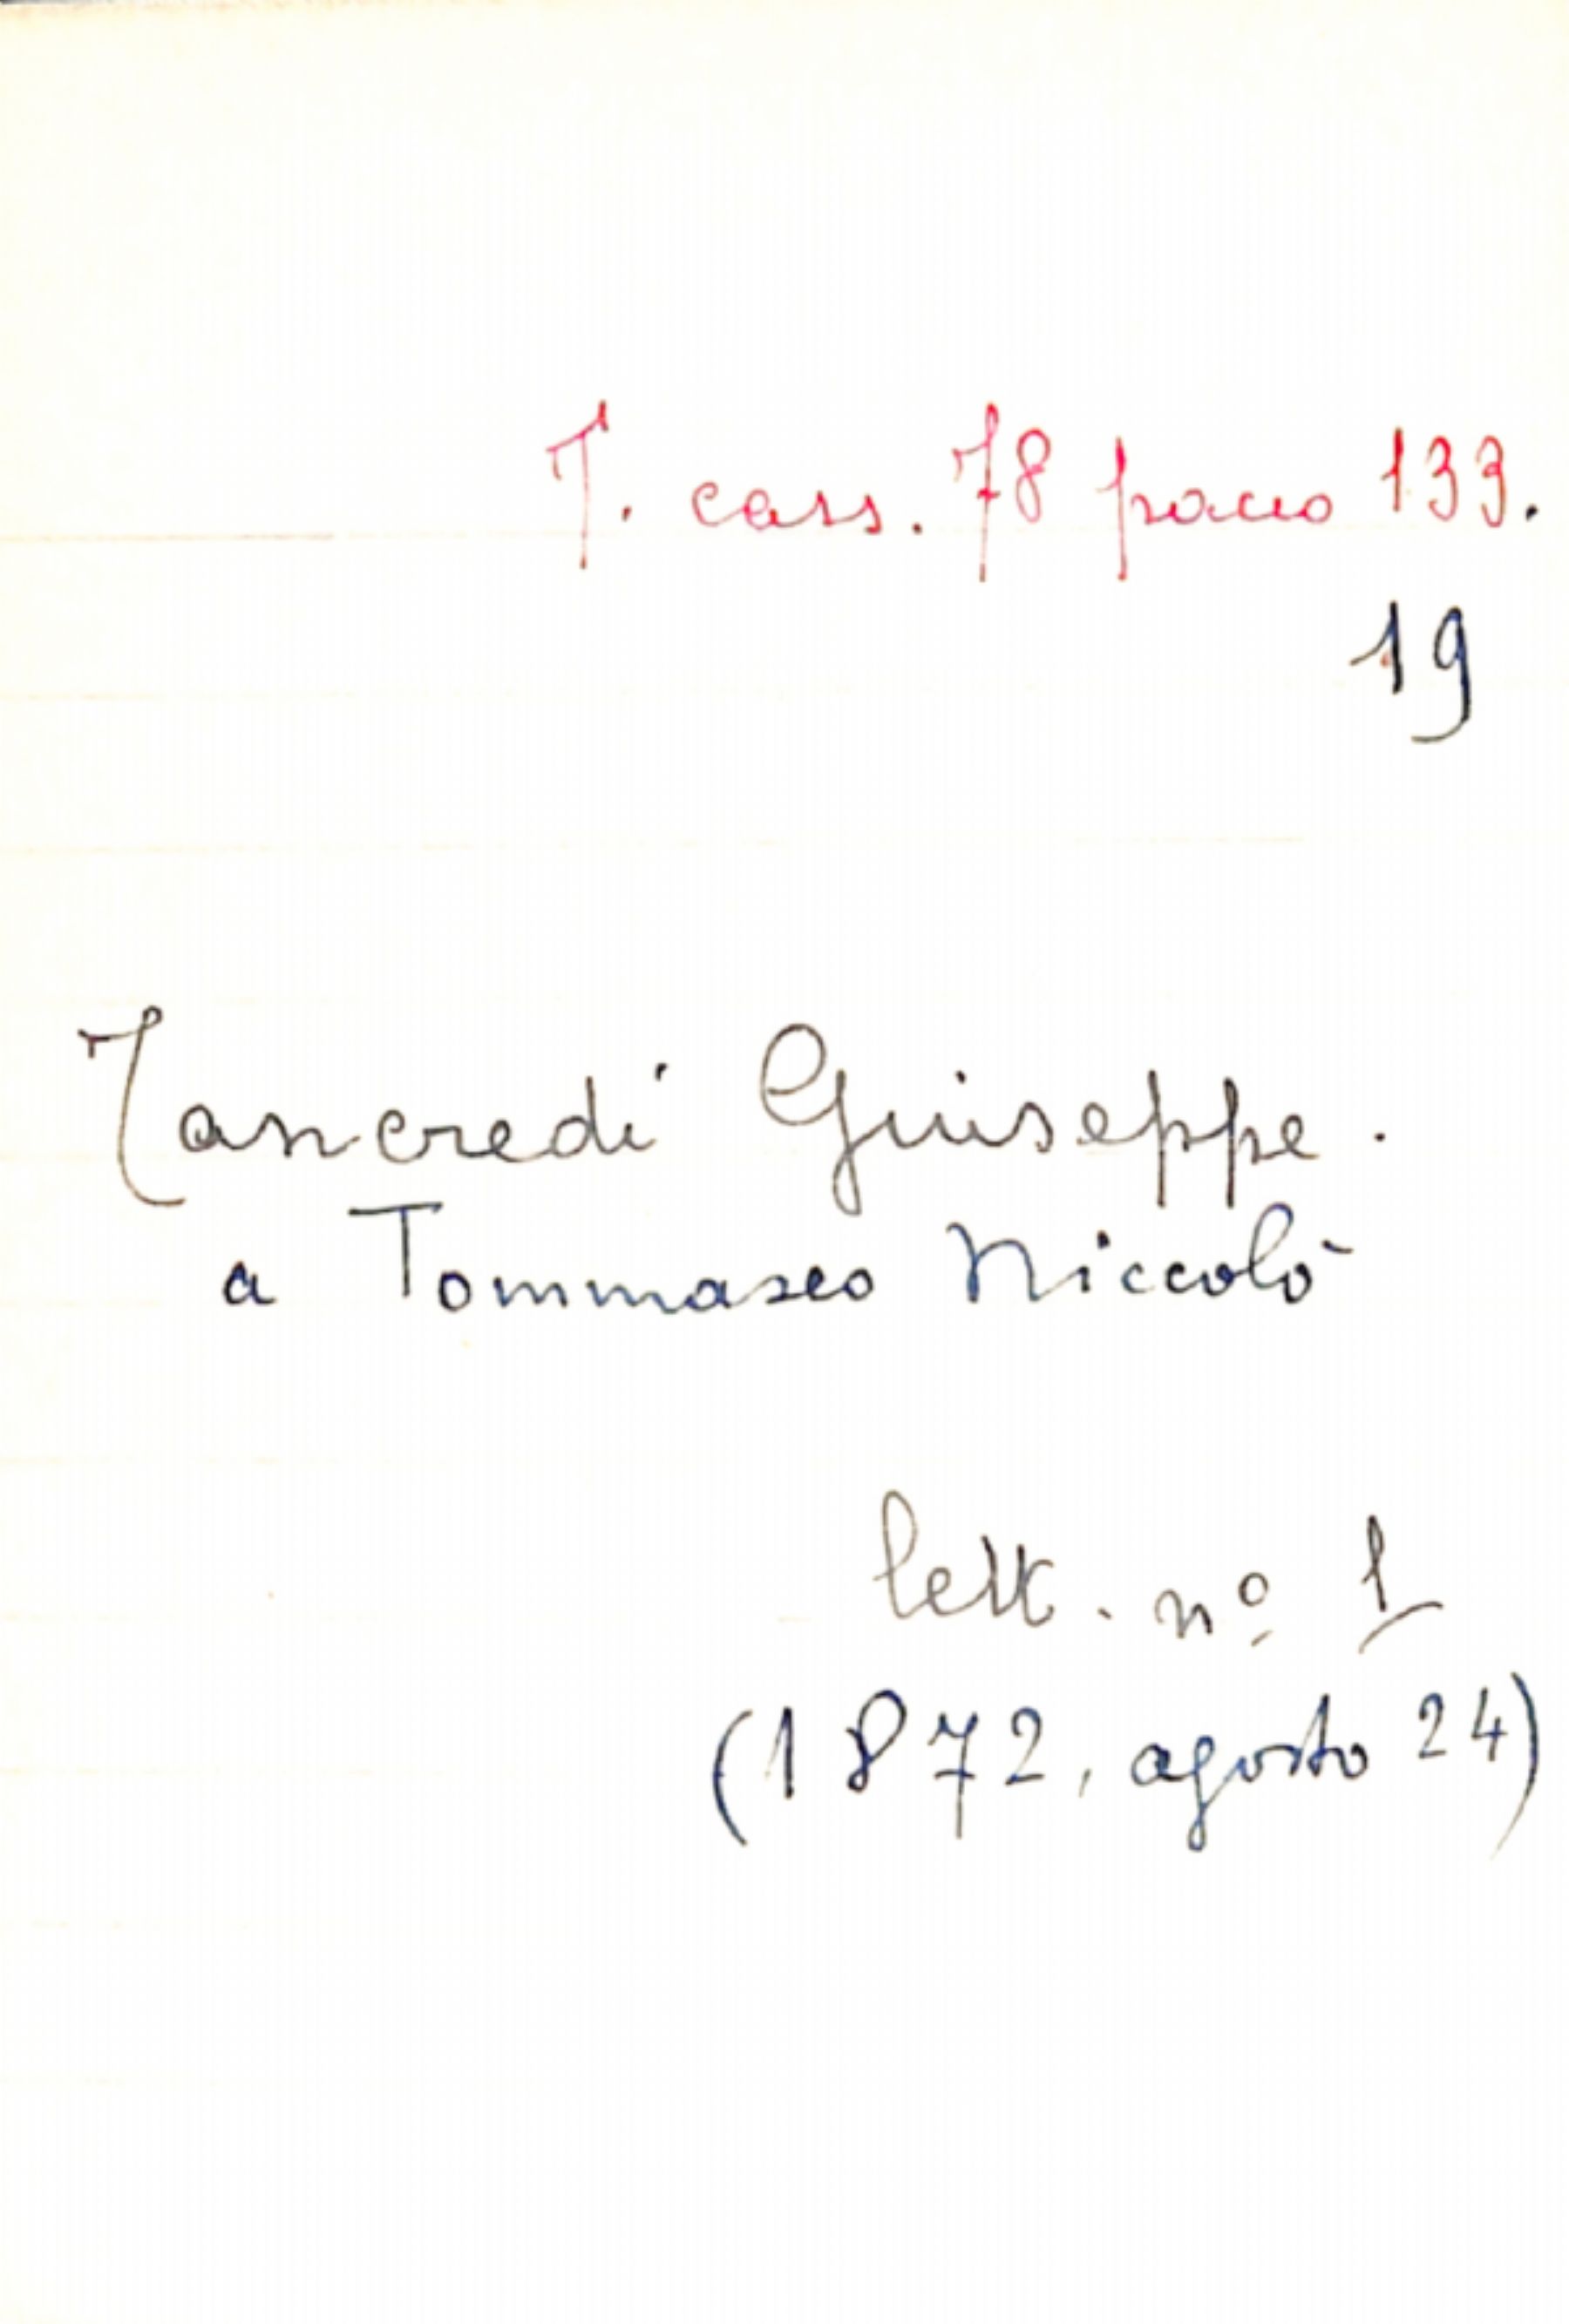 T. cass. 78 pacco 133.
19
Tancredi Giuseppe.
a Tommaseo Niccolò
lett. nº 1
(1872, agosto 24)